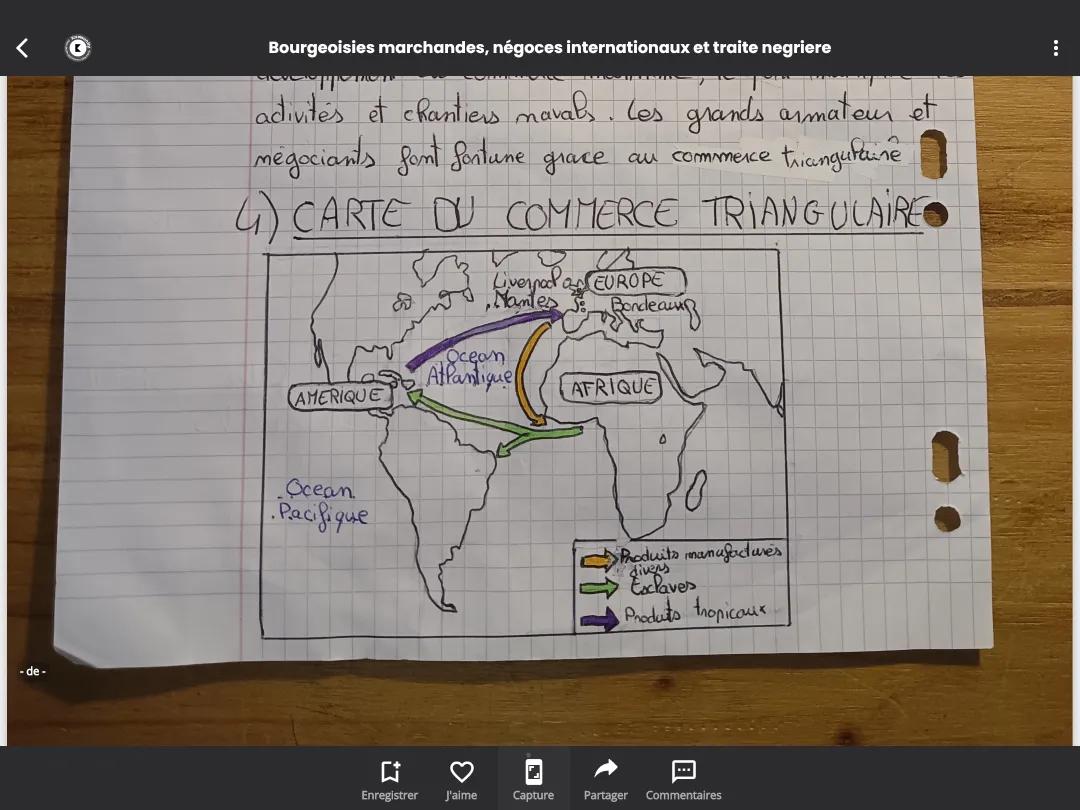 Bourgeoisies marchandes, négoces internationaux et traite negriere
activités et chantiers navals. Les grands armateur et
négociants font fortune grace au commerce triangulaire
4) CARTE DU COMMERCE TRIANGULAIRE
Liverpool
EUROPE
.Nantes
Bordeaux
Ocean
Atlantique
AFRIQUE
AMERIQUE
.Ocean
.Pacifique
Produits manufacturés
divers
Esclaves
Produits tropicaux
- de -
Enregistrer
J'aime
Capture
Partager
Commentaires